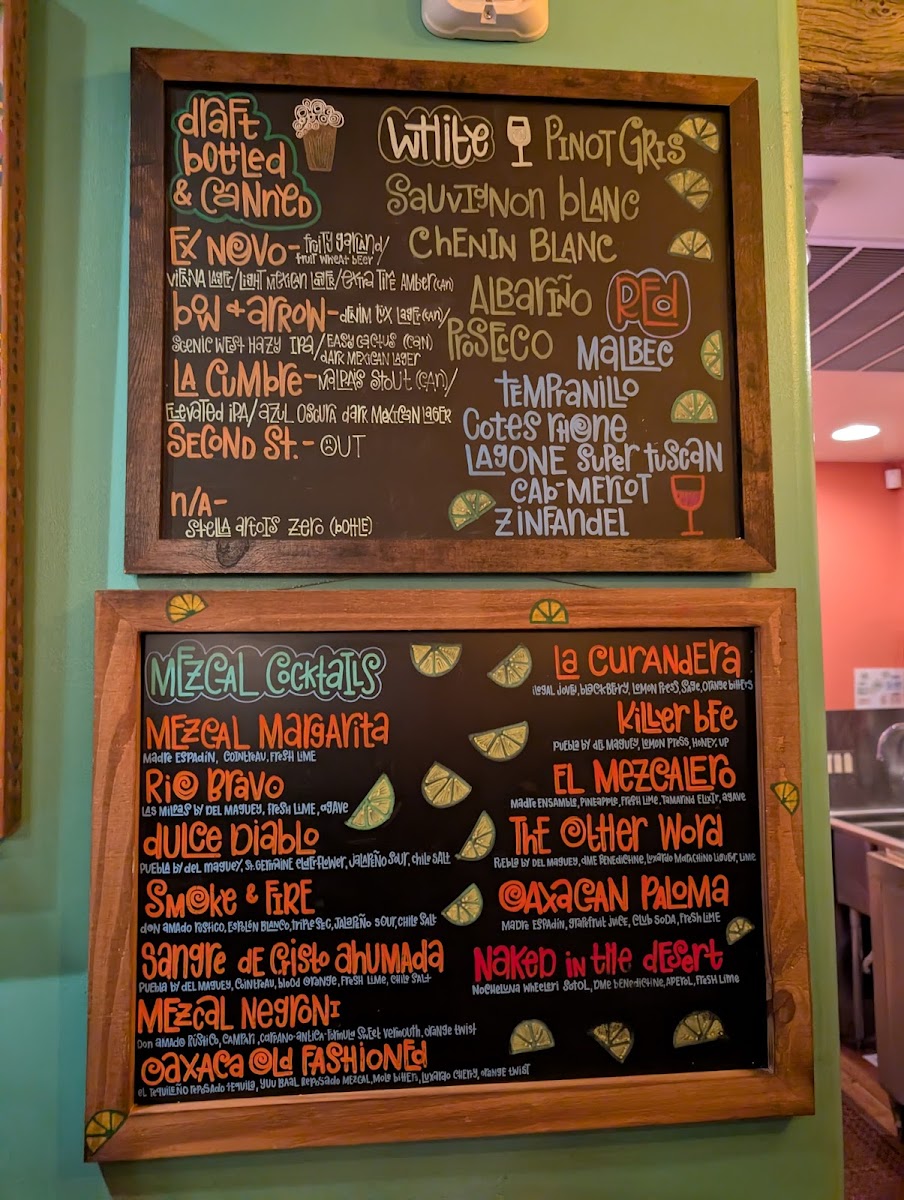 draft
bottled
& canned
Ex Novo - fruity garland/
fruit wheat beer
Vienna Lager/Light Mexican Lager/Extra Tire Amber (can)
Bow & Arrow - Denim Tux Lager (can)/
Scenic West Hazy IPA/Easy Cactus (can)
Dark Mexican Lager
La Cumbre - Malpais Stout (can)/
Elevated IPA/Azul Oscura Dark Mexican Lager
Second St. - OUT
n/a -
Stella Artois Zero (bottle)
White
Pinot Gris
Sauvignon Blanc
Chenin Blanc
Albariño
Prosecco
Red
Malbec
Tempranillo
Cotes Rhone
Lagone Super Tuscan
Cab-Merlot
Zinfandel
Mezcal Cocktails
Mezcal Margarita
Madre Espadin, Cointreau, Fresh Lime
Rio Bravo
Las Milpas by Del Maguey, Fresh Lime, Agave
Dulce Diablo
Puebla by Del Maguey, St. Germaine Elderflower, Jalapeño Sour, Chile Salt
Smoke & Fire
Don Amado Rustico, Espolón Blanco, Triple Sec, Jalapeño Sour, Chile Salt
Sangre de Cristo Ahumada
Puebla by Del Maguey, Cointreau, Blood Orange, Fresh Lime, Chile Salt
Mezcal Negroni
Don Amado Rústico, Campari, Carpano-Antica-Formula Sweet Vermouth, Orange Twist
Oaxaca Old Fashioned
El Tequileño Reposado Tequila, Yuu Baal Reposado Mezcal, Mole Bitters, Luxardo Cherry, Orange Twist
La Curandera
Ilegal Joven, Blackberry, Lemon Press, Sage, Orange Bitters
Killer Bee
Puebla by Del Maguey, Lemon Press, Honey, Up
El Mezcalero
Madre Ensamble, Pineapple, Fresh Lime, Tamarind Elixir, Agave
The Other Word
Puebla by Del Maguey, DME Benedictine, Luxardo Maraschino Liquer, Lime
Oaxacan Paloma
Madre Espadín, Grapefruit Juice, Club Soda, Fresh Lime
Naked in the Desert
Nocheluna Wheeleri Sotol, DME Benedictine, Aperol, Fresh Lime